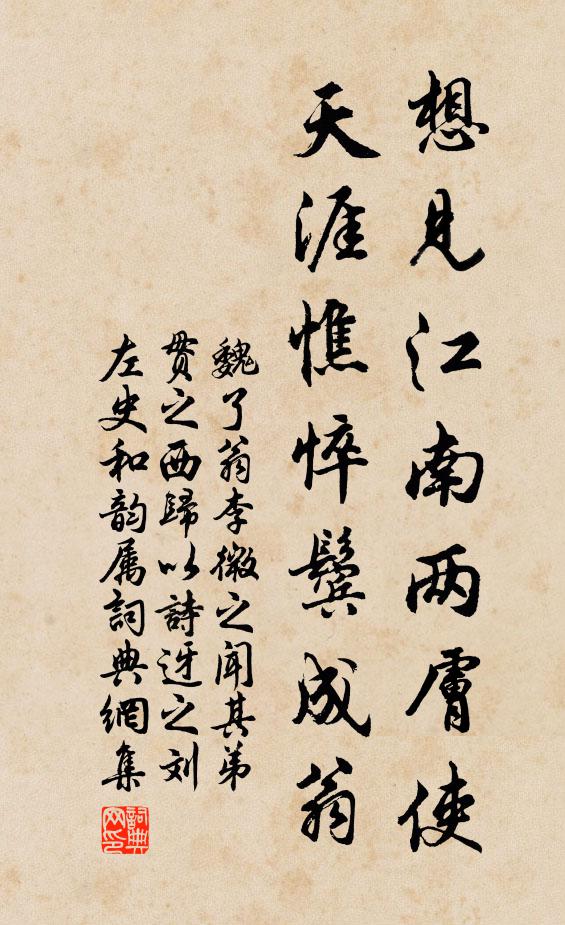 想见江南两膚使
天涯憔悴鬓成翁
魏了翁李微之闻其弟
贯之西歸以詩迓之刘
左史和韵属詞典網集
詞典網印